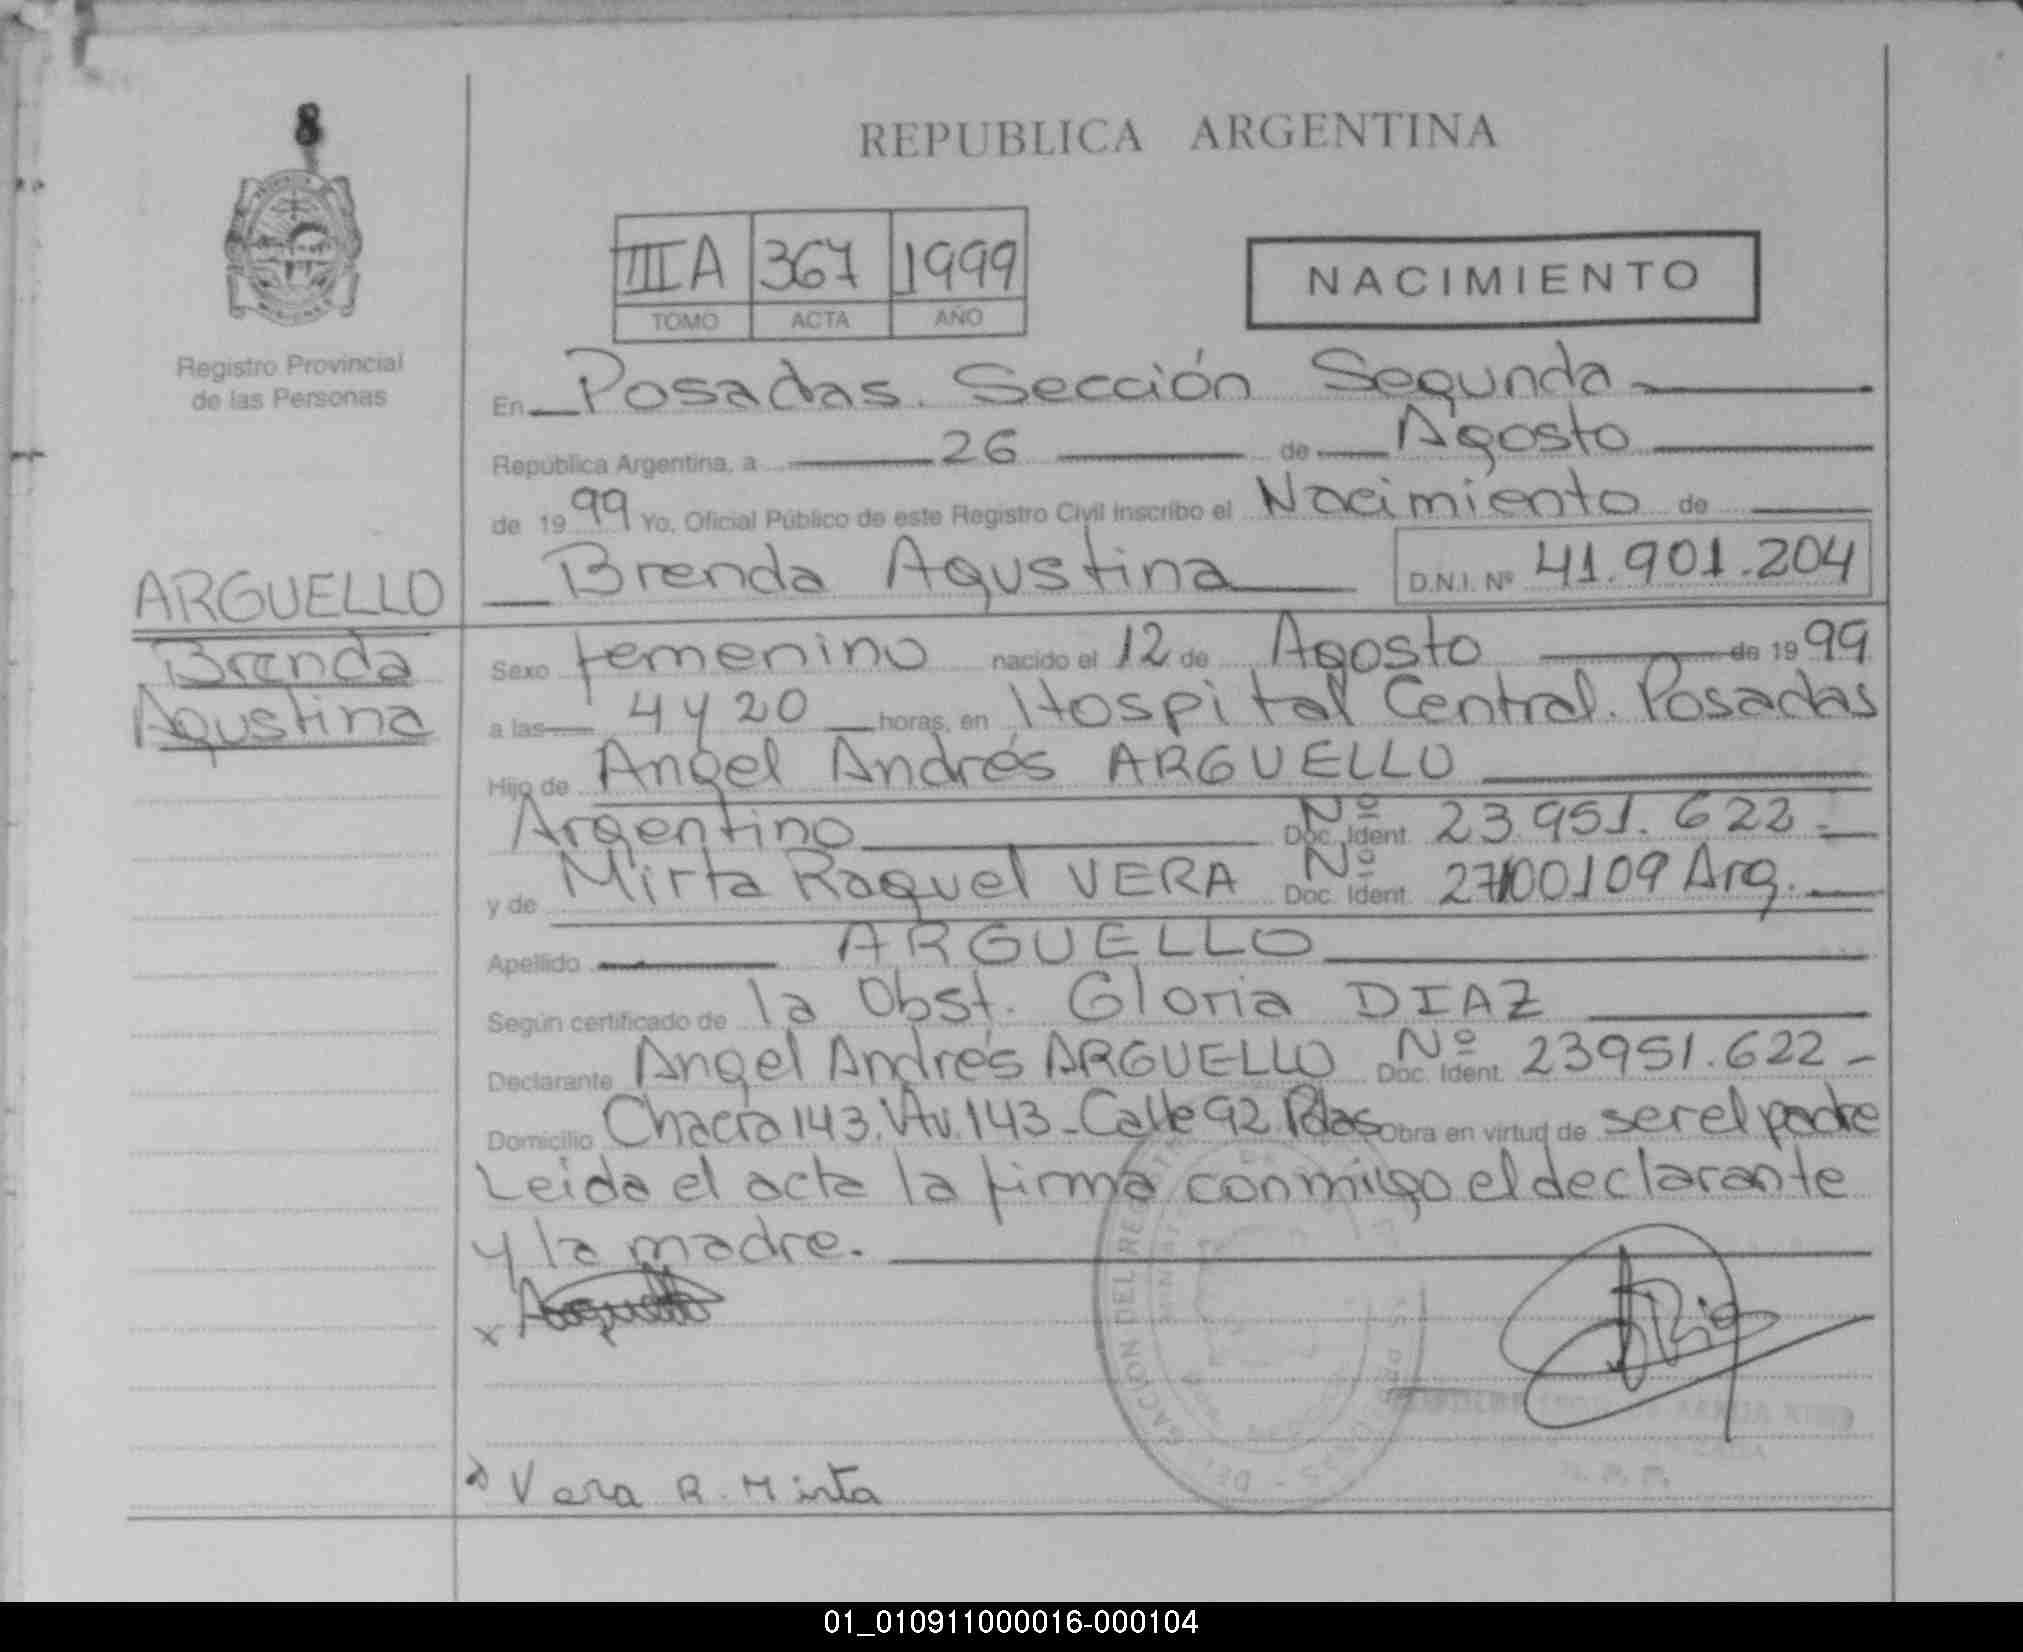 8
REPUBLICA ARGENTINA
IIIA 367 1999
TOMO ACTA AÑO
NACIMIENTO
Registro Provincial
de las Personas
En Posadas. Sección Segunda
República Argentina, a 26 de Agosto
de 1999 Yo, Oficial Público de este Registro Civil inscribo el Nacimiento de
ARGUELLO
Brenda
Agustina
Brenda Agustina D.N.I. Nº 41.901.204
Sexo femenino nacido el 12 de Agosto de 1999
a las 4 y 20 horas, en Hospital Central. Posadas
Hijo de Angel Andrés ARGUELLO
Argentino Nº Doc. Ident. 23.951.622.-
y de Mirta Raquel VERA Nº Doc. Ident. 27100109 Arg.
Apellido ARGUELLO
Según certificado de la Obst. Gloria DIAZ
Declarante Angel Andrés ARGUELLO Nº Doc. Ident. 23951.622-
Domicilio Chacra 143. Viv. 143-Calle 92 Pdas Obra en virtud de ser el padre
Leida el acta la firma conmigo el declarante
y la madre.
x Arguello
DELEGACION DEL REGISTRO
x Vera R. Mirta
01_010911000016-000104